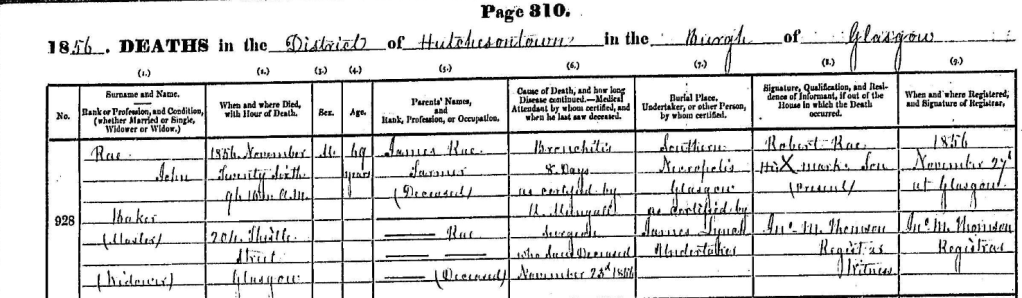 Page 310.
1856. DEATHS in the District of Hutchesontown in the Burgh of Glasgow
(1.) (2.) (3.) (4.) (5.) (6.) (7.) (8.) (9.)
No.
Surname and Name.
Rank or Profession, and Condition,
(whether Married or Single,
Widower or Widow.)
When and where Died,
with Hour of Death.
Sex.
Age.
Parents' Names,
and
Rank, Profession, or Occupation.
Cause of Death, and how long
Disease continued.—Medical
Attendant by whom certified, and
when he last saw deceased.
Burial Place.
Undertaker, or other Person,
by whom certified.
Signature, Qualification, and Resi-
dence of Informant, if out of the
House in which the Death
occurred.
When and where Registered,
and Signature of Registrar.
928
Rae
John
Baker
(Master)
(Widower)
1856 November
Twenty Sixth
9h 10m A.M.
204 Thistle
Street
Glasgow
M.
69
years
James Rae
Farmer
(Deceased)
—— Rae
—— (Deceased)
Bronchitis
8 Days
as certified by
Surgeon
who saw Deceased
November 23d 1856
Southern
Necropolis
Glasgow
as certified by
James
Undertaker
Robert Rae
His X mark Son
(present)
Jno. M. Thomson
Registrar
Witness
1856
November 27th
at Glasgow
Jno. M. Thomson
Registrar